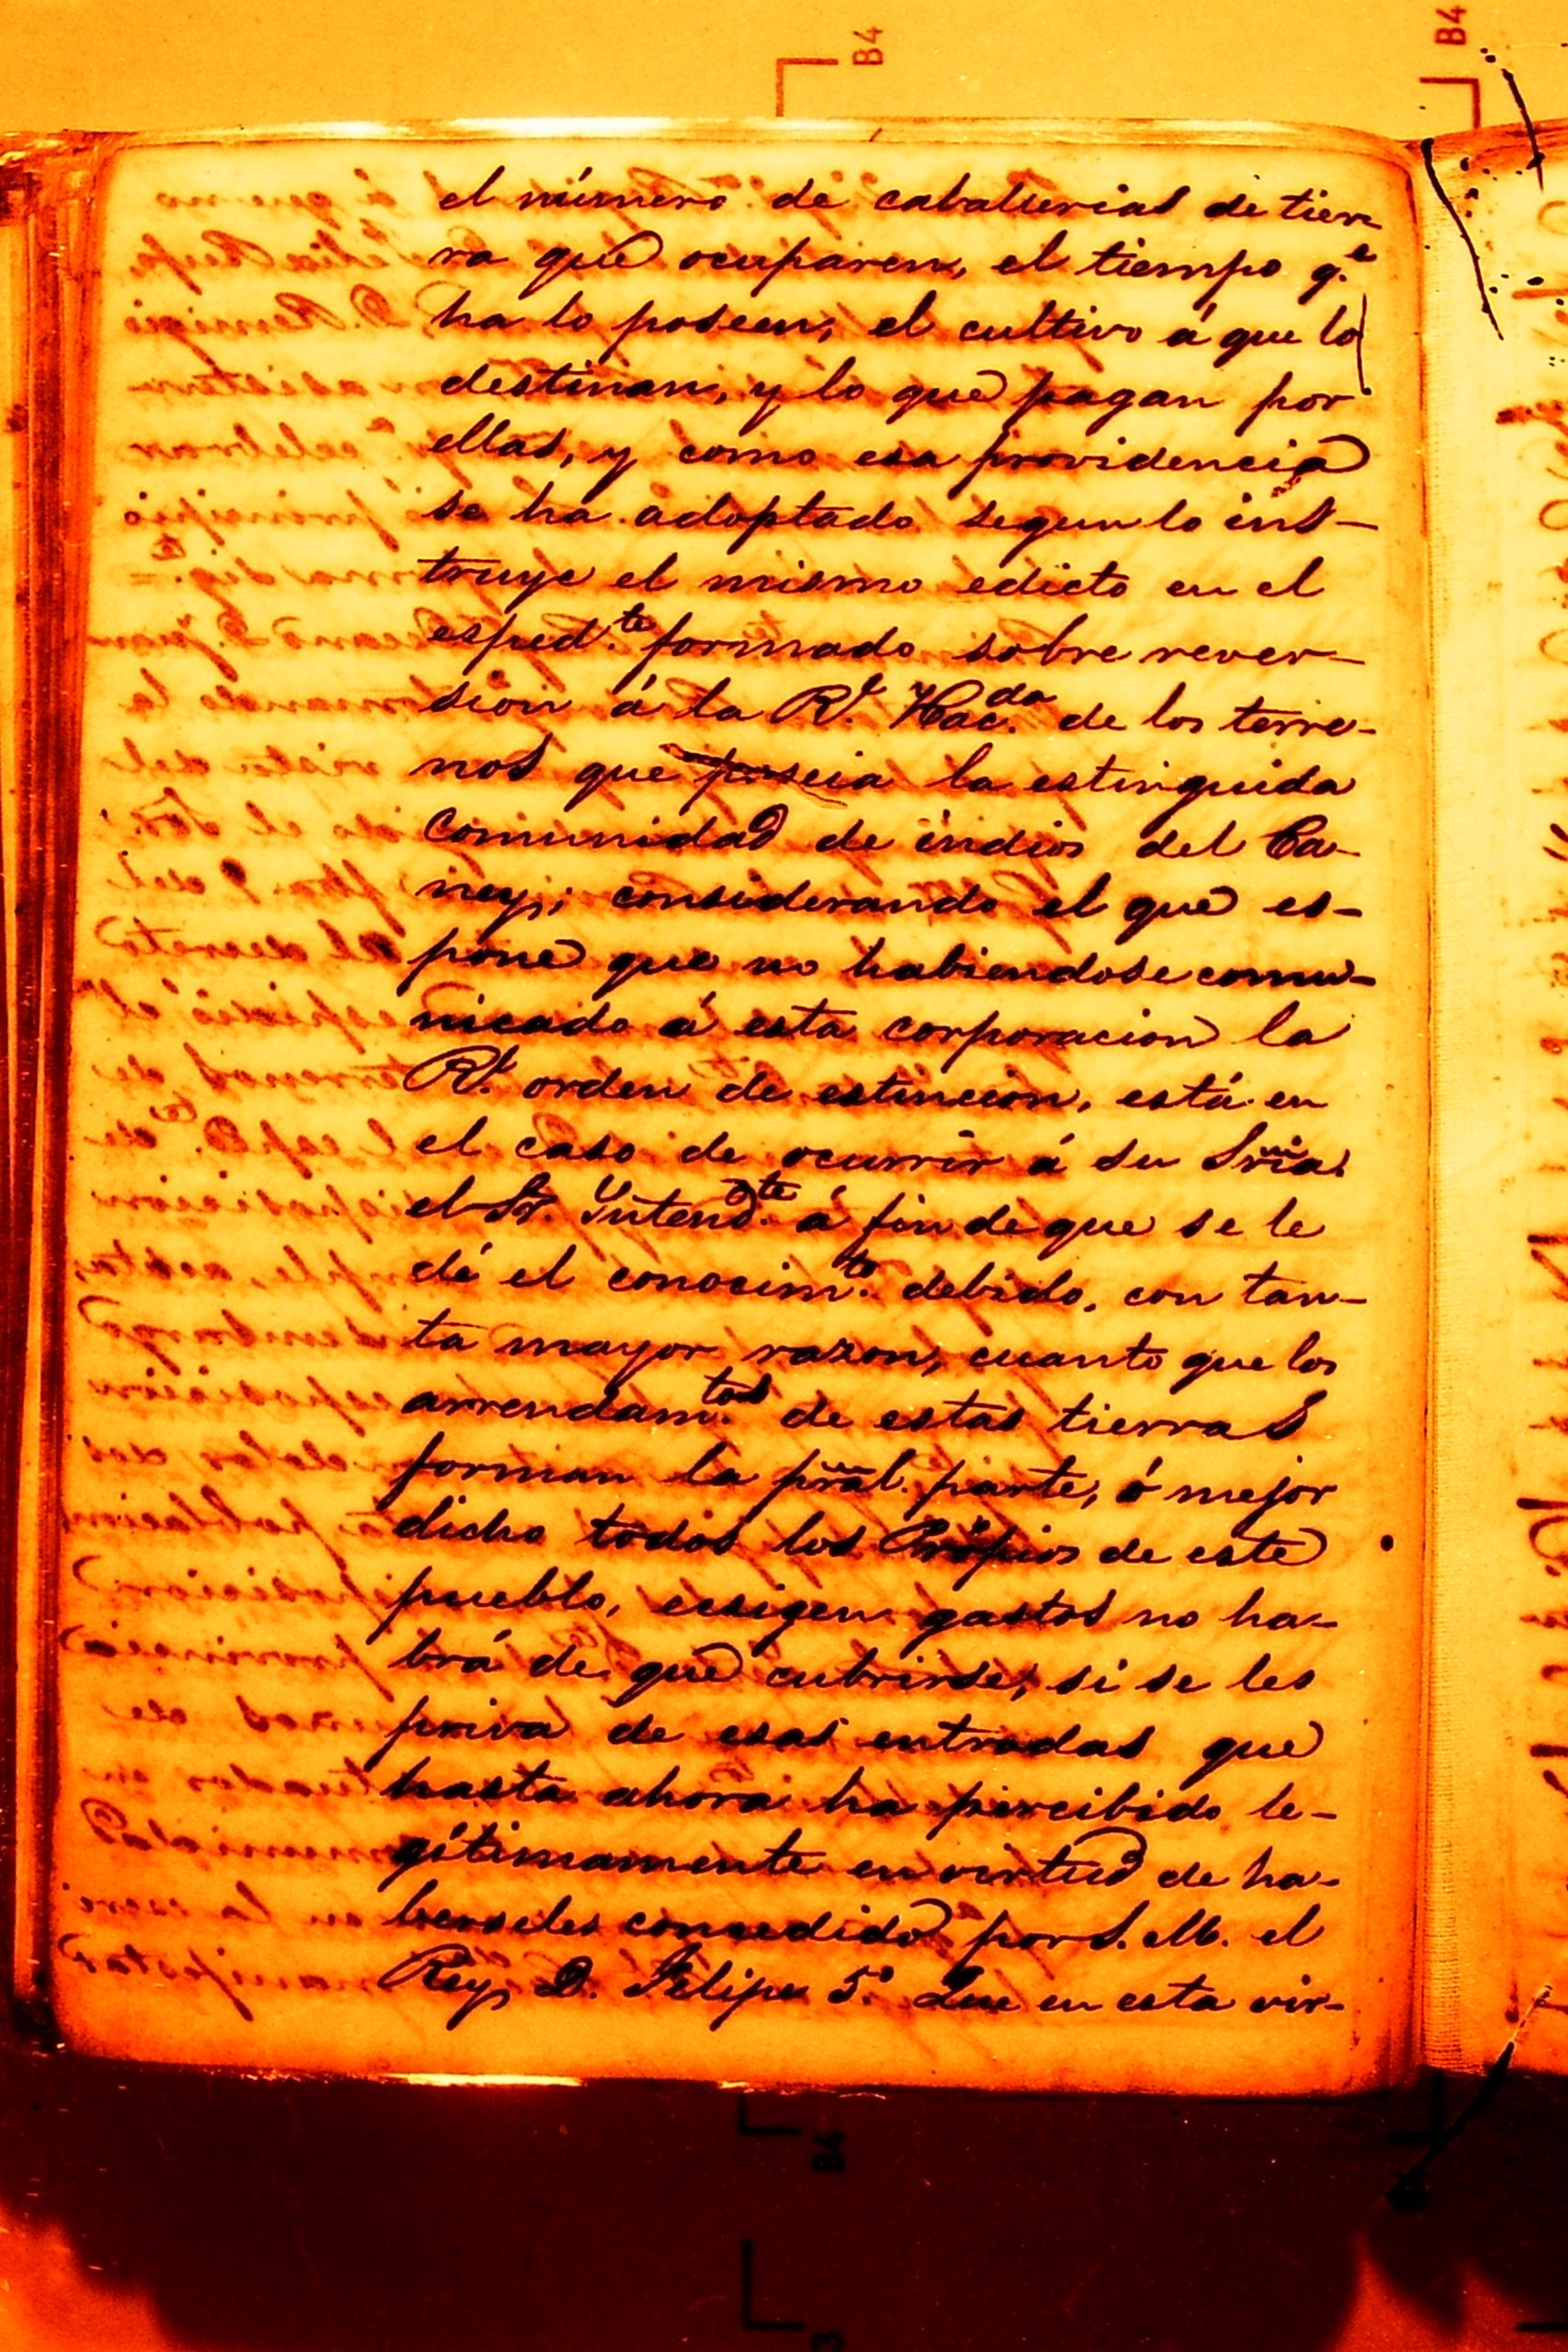 B4
B4
el número de caballerias de tier-
ra que ocuparen, el tiempo q.e
ha lo poseen, el cultivo á que lo
destinan, y lo que pagan por
ellas, y como esa providencia
se ha adoptado segun lo ins-
truye el mismo edicto en el
esped.te formado sobre rever-
sion á la R.l Hac.da de los terre-
nos que poseia la estinguida
comunidad de indios del Ca-
ney; considerando el que es-
pone que no habiendose comu-
nicado á esta corporacion la
R.l orden de estincion, está en
el caso de ocurrir á su Sria.
el Sr. Intend.te á fin de que se le
dé el conocim.to debido, con tan-
ta mayor razon, cuanto que los
arrendam.tos de estas tierras
forman la pral. parte, ó mejor
dicho todos los Própios de este
pueblo, gastos no ha-
brá de que cubrirse, si se les
priva de esas entradas que
hasta ahora ha percibido le-
gítimamente en virtud de ha-
berseles concedido por S. M. el
Rey D. Felipe 5.º Que en esta vir-
B4